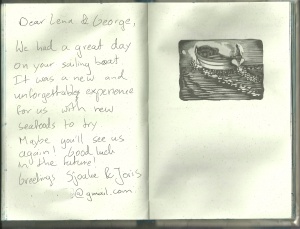 Dear Lena & George,
We had a great day
on your sailing boat
It was a new and
unforgettable experience
for us with new
seafoods to try
Maybe you'll see us
again! Good luck
in the future!
Greetings Sjoake & Joris
@gmail.com